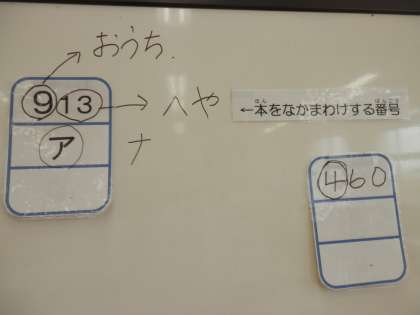 おうち.
913 → へや
←本をなかまわけする番号
ア ナ
460